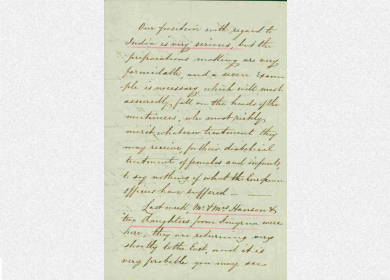 Our position with regard to
India is very serious, but the
preparations making are very
formidable, and a severe exam-
ple is necessary which will most
assuredly fall on the heads of the
mutineers, who most richly
merit whatever treatment they
may receive for their diabolical
treatment of females and infants
to say nothing of what the European
officers have suffered –
Last week Mr & Mrs Hanson &
two daughters from Smyrna were
here, they are returning very
shortly to the East, and it is
very probable you may see